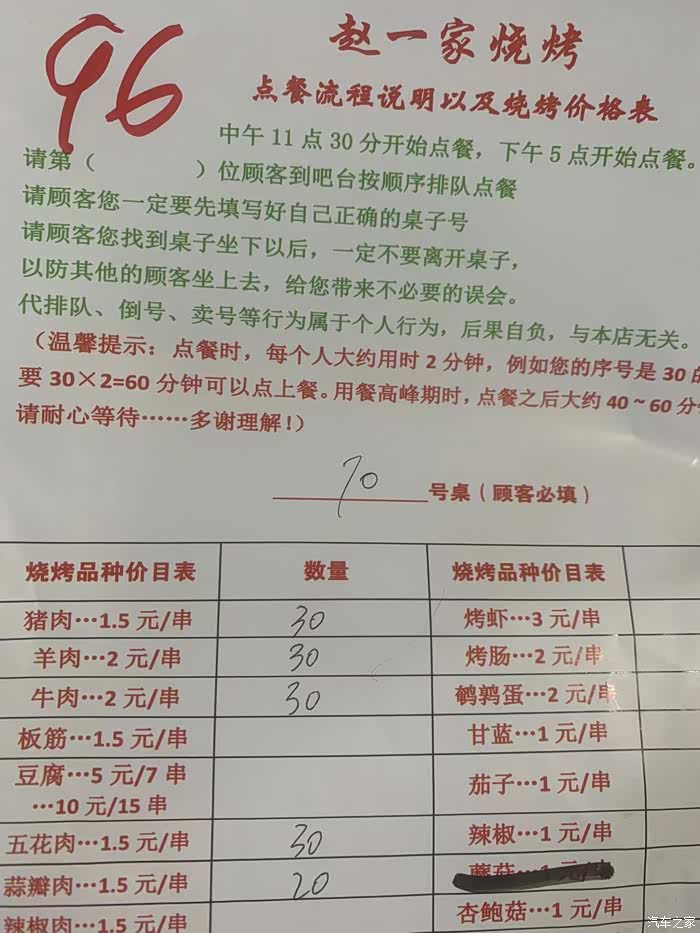 96
赵一家烧烤
点餐流程说明以及烧烤价格表
中午11点30分开始点餐，下午5点开始点餐。
请第（ ）位顾客到吧台按顺序排队点餐
请顾客您一定要先填写好自己正确的桌子号
请顾客您找到桌子坐下以后，一定不要离开桌子，
以防其他的顾客坐上去，给您带来不必要的误会。
代排队、倒号、卖号等行为属于个人行为，后果自负，与本店无关。
（温馨提示：点餐时，每个人大约用时2分钟，例如您的序号是30的
要30×2=60分钟可以点上餐。用餐高峰期时，点餐之后大约40~60分钟
请耐心等待……多谢理解！）
70 号桌（顾客必填）
烧烤品种价目表 数量 烧烤品种价目表
猪肉…1.5元/串 30 烤虾…3元/串
羊肉…2元/串 30 烤肠…2元/串
牛肉…2元/串 30 鹌鹑蛋…2元/串
板筋…1.5元/串 甘蓝…1元/串
豆腐…5元/7串 茄子…1元/串
…10元/15串
五花肉…1.5元/串 30 辣椒…1元/串
蒜瓣肉…1.5元/串 20
辣椒肉…1.5元/串 杏鲍菇…1元/串
汽车之家